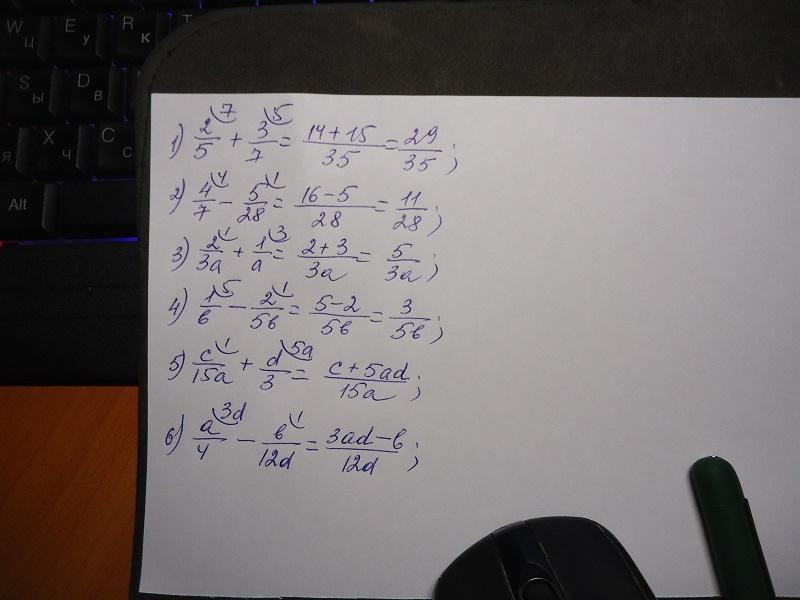 W Ц E У R К T
S Ы D В
Я X Ч C С
Alt
1) 2/5 ⁷ + 3/7 ⁵ = (14+15)/35 = 29/35;
2) 4/7 ⁴ − 5/28 ¹ = (16−5)/28 = 11/28;
3) 2/3a ¹ + 1/a ³ = (2+3)/3a = 5/3a;
4) 1/в ⁵ − 2/5в ¹ = (5−2)/5в = 3/5в;
5) c/15a ¹ + d/3 ⁵ᵃ = (c+5ad)/15a;
6) a/4 ³ᵈ − в/12d ¹ = (3ad−в)/12d;